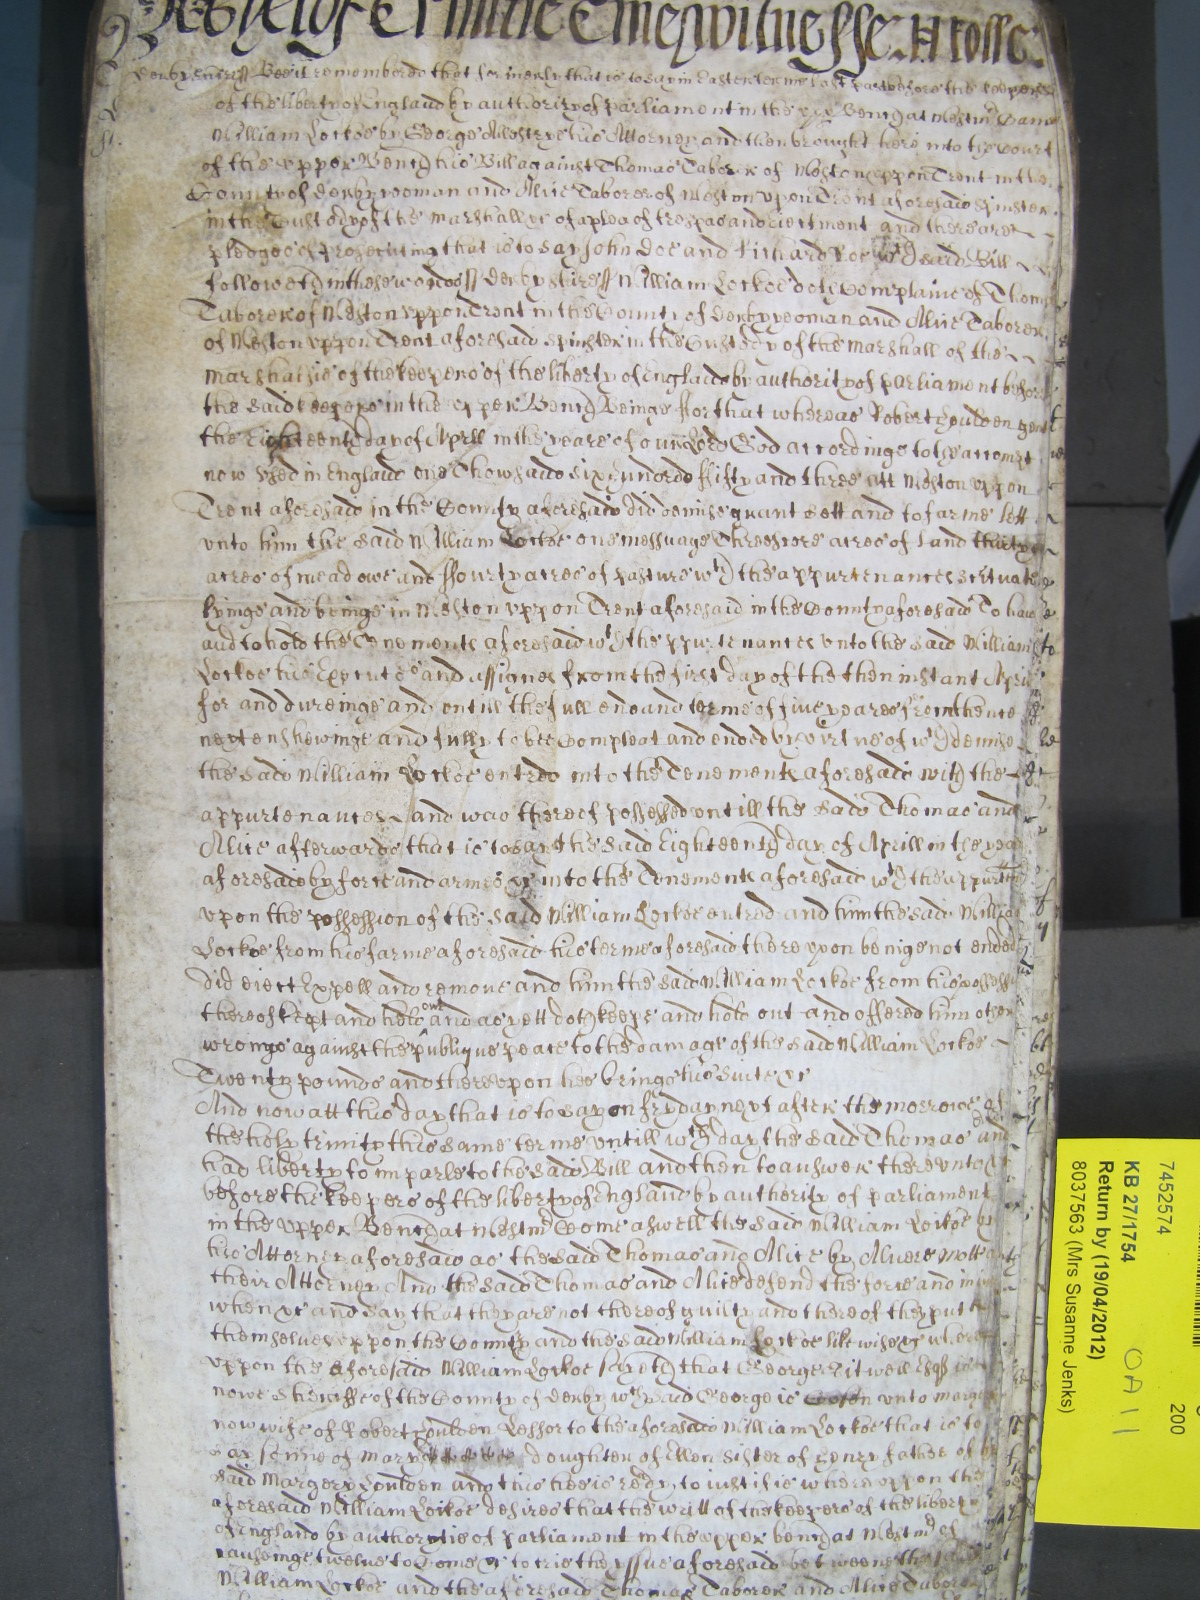 Trinitie Terme witnesse H Rolle
Derbyshiress Bee it remembered that formerly that is to say in Easter terme last past before the keepers
of the liberty of England by authority of parliament in the upper Bench at Westmr Came
William Lockoe by George his Attorney and then brought here into the Court
of the upper Bench his Bill against Thomas Taborer of Weston uppon Trent in the
County of derby yeoman and Alice Taborer of Weston upon Trent aforesaid spinster
in the Custody of the marshall &c of a plea of trespas and eiectment and there are
pledges of prosecuting that is to say John Doe and Richard Roe wch said Bill
followeth in these wordes ss Derbyshire ss William Lockoe doth Complaine of Thomas
Taborer of Weston uppon Trent in the County of derby yeoman and Alice Taborer
of Weston uppon Trent aforesaid spinster in the Custody of the marshall of the
marshalsie of the keepers of the liberty of England by authority of parliament before
the said keepers in the upper Bench Beinge ffor that whereas Robert gent
the Eighteenth day of Aprill in the yeare of our Lord God accordinge to the accompt
now used in England one Thowsand six hundred ffifty and three att Weston uppon
Trent aforesaid in the County aforesaid did demise graunt sett and to farme lett
unto him the said William Lockoe one messuage Threescore acres of Land thirty
acres of meadowe and ffourty acres of pasture wth the appurtenances scituate
lyinge and beinge in Weston uppon Trent aforesaid in the County aforesaid To have
and to hold the Tenements aforesaid wth the appurtenances unto the said William
Lockoe his Executors and assignes from the first day of the then instant Aprill
for and dureinge and untill the full end and terme of five yeares from thence
next enshewinge and fully to bee Compleat and ended by virtue of wch demise
the said William Lockoe entred into the Tenements aforesaid with the
appurtenances and was thereof possessed untill the said Thomas and
Alice afterwards that is to say the said Eighteenth day of Aprill in the yeare
aforesaid by force and armes &c into the Tenements aforesaid wth the appurtenances
upon the possession of the said William Lockoe entred and him the said William
Lockoe from his farme aforesaid his terme aforesaid thereupon beinge not ended
did eiect Expell and remove and him the said William Lockoe from his possession
thereof kept and held out and as yett doth keepe and hold out and offered him other
wronge against the publique peace to the damage of the said William Lockoe
Twenty pounds and thereupon hee brings his suite &c
And now att this day that is to say on fryday next after the morrow of
the holy trinity this same terme untill wch day the said Thomas and
had liberty to imparle to the said Bill and then to answer thereunto
before the keepers of the liberty of England by authority of parliament
in the upper Bench at Westmr Come aswell the said William Lockoe by
his Attorney aforesaid as the said Thomas and Alice by
their Attorney And the said Thomas and Alice defend the force and
when &c and say that they are not thereof guilty and thereof they put
themselves uppon the County and the said William Lockoe likewise &c
uppon the aforesaid William Lockoe sayeth that George
nowe Sheriffe of the County of derby wch said George is Cosen unto margery
now wife of Robert Lessor to the aforesaid William Lockoe that is to
say sonne of mary doughter of Ellen sister of Henry father of
said Margery and this hee is ready to justifie whereuppon the
aforesaid William Lockoe desires that the writt of the keepers of the liberty
of England by authoritie of parliament in the upper bench at Westmr of
causeinge twelve to Come &c to trie the yssue aforesaid betweene the said
William Lockoe and the aforesaid Thomas Taborer and Alice Taborer
7452574
KB 27/1754
Return by (19/04/2012)
8037563 (Mrs Susanne Jenks)
200